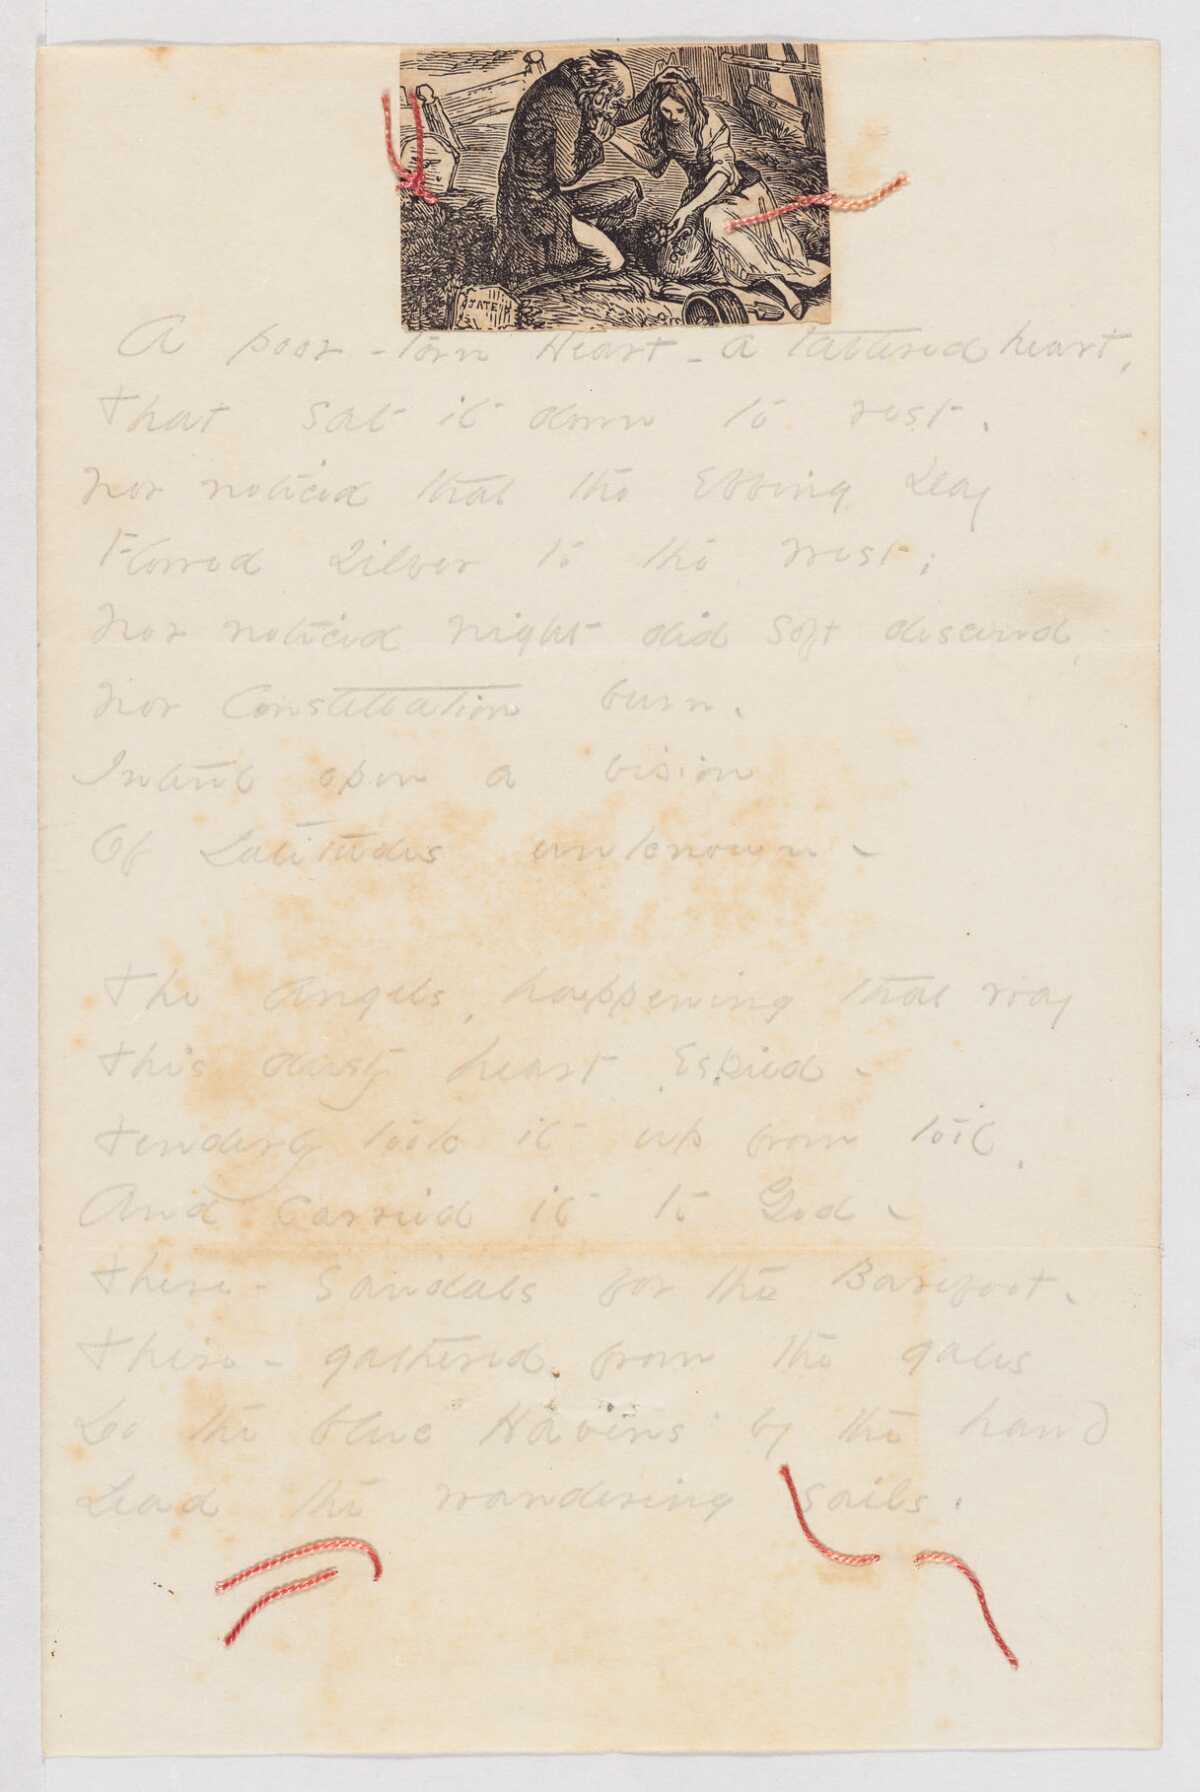 JATE
A poor - torn Heart - a tattered heart,
That sat it down to rest.
Nor noticed that the Ebbing Day
Flowed Silver to the West;
Nor noticed night did soft descend,
Nor Constellation burn.
Intent upon a vision
Of Latitudes unknown -
The Angels, happening that way
This dusty heart Espied -
Tenderly took it up from toil,
And Carried it to God -
There - Sandals for the Barefoot.
There - gathered from the gales
Do the blue Havens by the hand
Lead the wandering Sails.